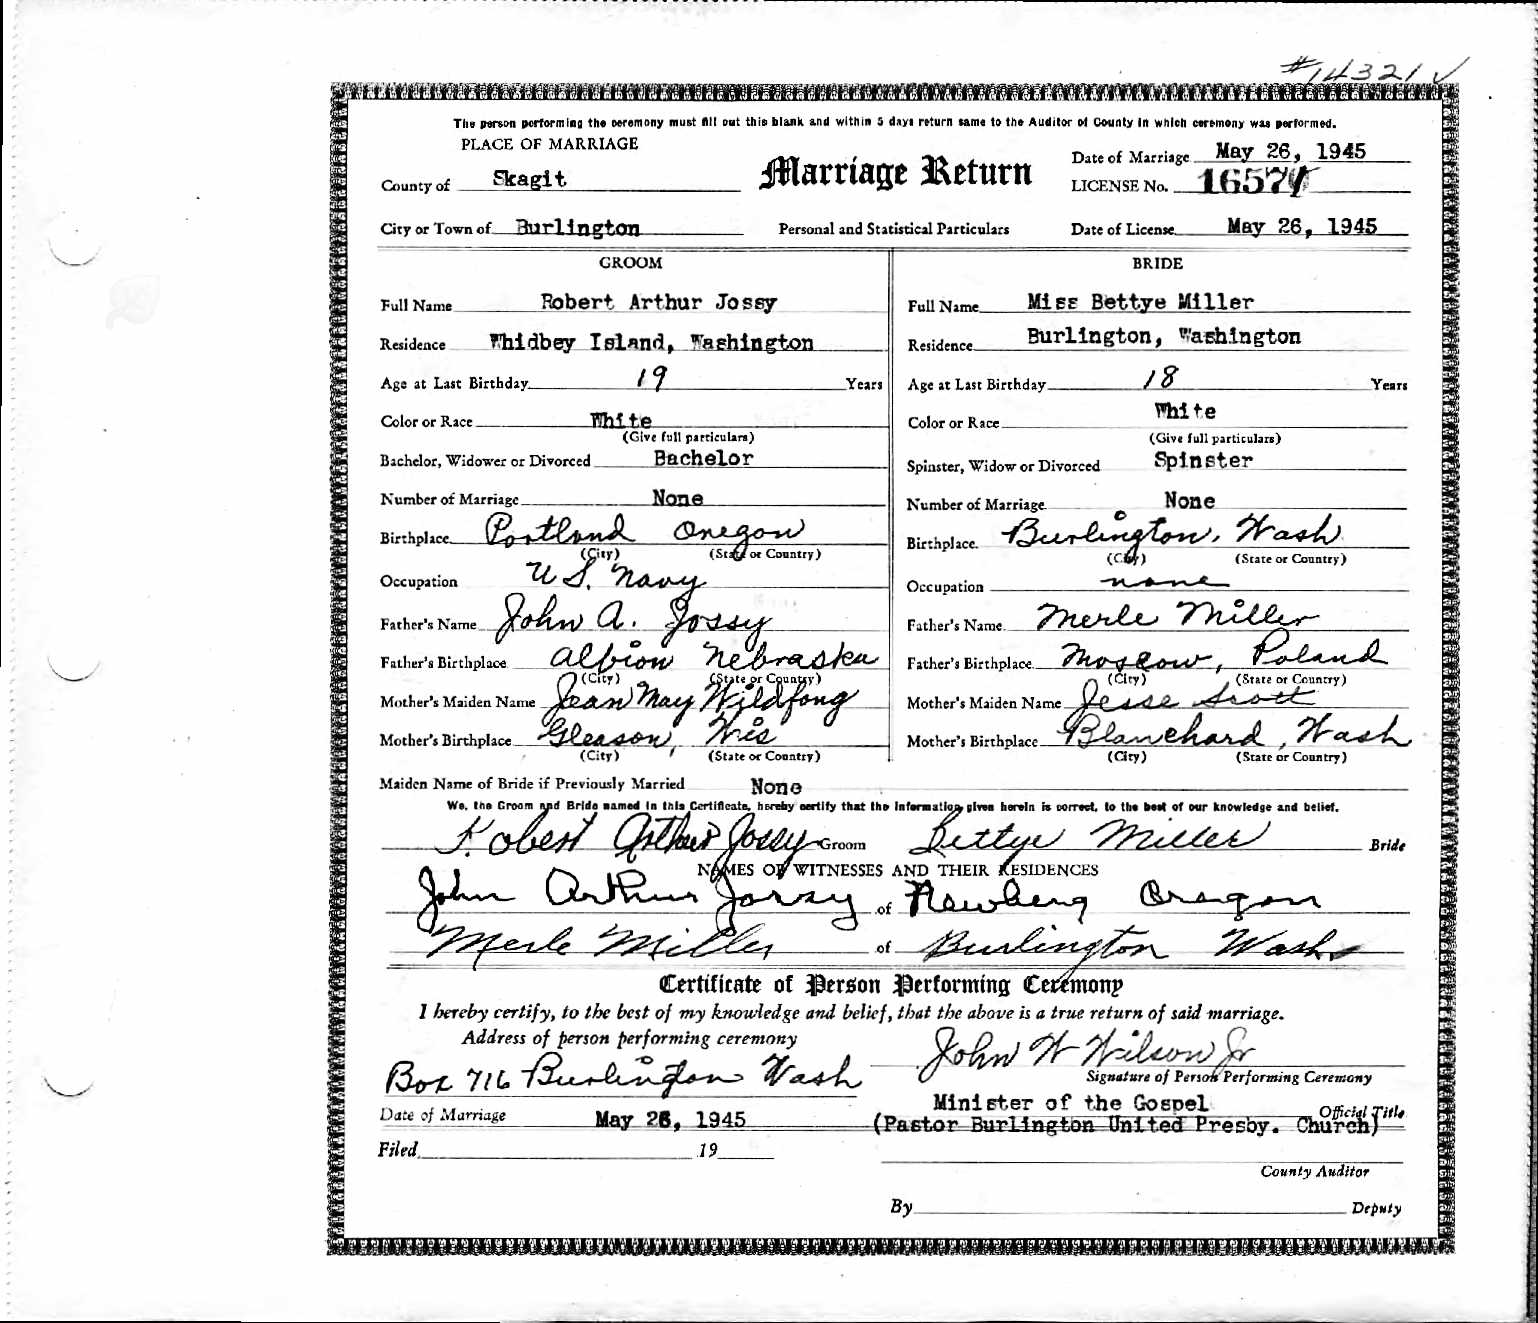 #14321 ✓
The person performing the ceremony must fill out this blank and within 5 days return same to the Auditor of County in which ceremony was performed.
PLACE OF MARRIAGE
County of Skagit
City or Town of Burlington
Marriage Return
Personal and Statistical Particulars
Date of Marriage May 26, 1945
LICENSE No. 16571
Date of License May 26, 1945
GROOM
Full Name Robert Arthur Jossy
Residence Whidbey Island, Washington
Age at Last Birthday 19 Years
Color or Race White
(Give full particulars)
Bachelor, Widower or Divorced Bachelor
Number of Marriage None
Birthplace Portland Oregon
(City) (State or Country)
Occupation U.S. Navy
Father's Name John A. Jossy
Father's Birthplace Albion Nebraska
(City) (State or Country)
Mother's Maiden Name Jean May Wildfong
Mother's Birthplace Gleason, Wis
(City) (State or Country)
BRIDE
Full Name Miss Bettye Miller
Residence Burlington, Washington
Age at Last Birthday 18 Years
Color or Race White
(Give full particulars)
Spinster, Widow or Divorced Spinster
Number of Marriage None
Birthplace Burlington, Wash
(City) (State or Country)
Occupation none
Father's Name Merle Miller
Father's Birthplace Moscow, Poland
(City) (State or Country)
Mother's Maiden Name Jesse Scott
Mother's Birthplace Blanchard, Wash
(City) (State or Country)
Maiden Name of Bride if Previously Married None
We, the Groom and Bride named in this Certificate, hereby certify that the information given herein is correct, to the best of our knowledge and belief.
Robert Arthur Jossy Groom Bettye Miller Bride
NAMES OF WITNESSES AND THEIR RESIDENCES
John Arthur Jossy of Newberg Oregon
Merle Miller of Burlington Wash.
Certificate of Person Performing Ceremony
I hereby certify, to the best of my knowledge and belief, that the above is a true return of said marriage.
Address of person performing ceremony
John W Wilson Jr
Box 716 Burlington Wash
Signature of Person Performing Ceremony
Minister of the Gospel Official Title
Date of Marriage May 26, 1945 (Pastor Burlington United Presby. Church)
Filed 19
County Auditor
By Deputy